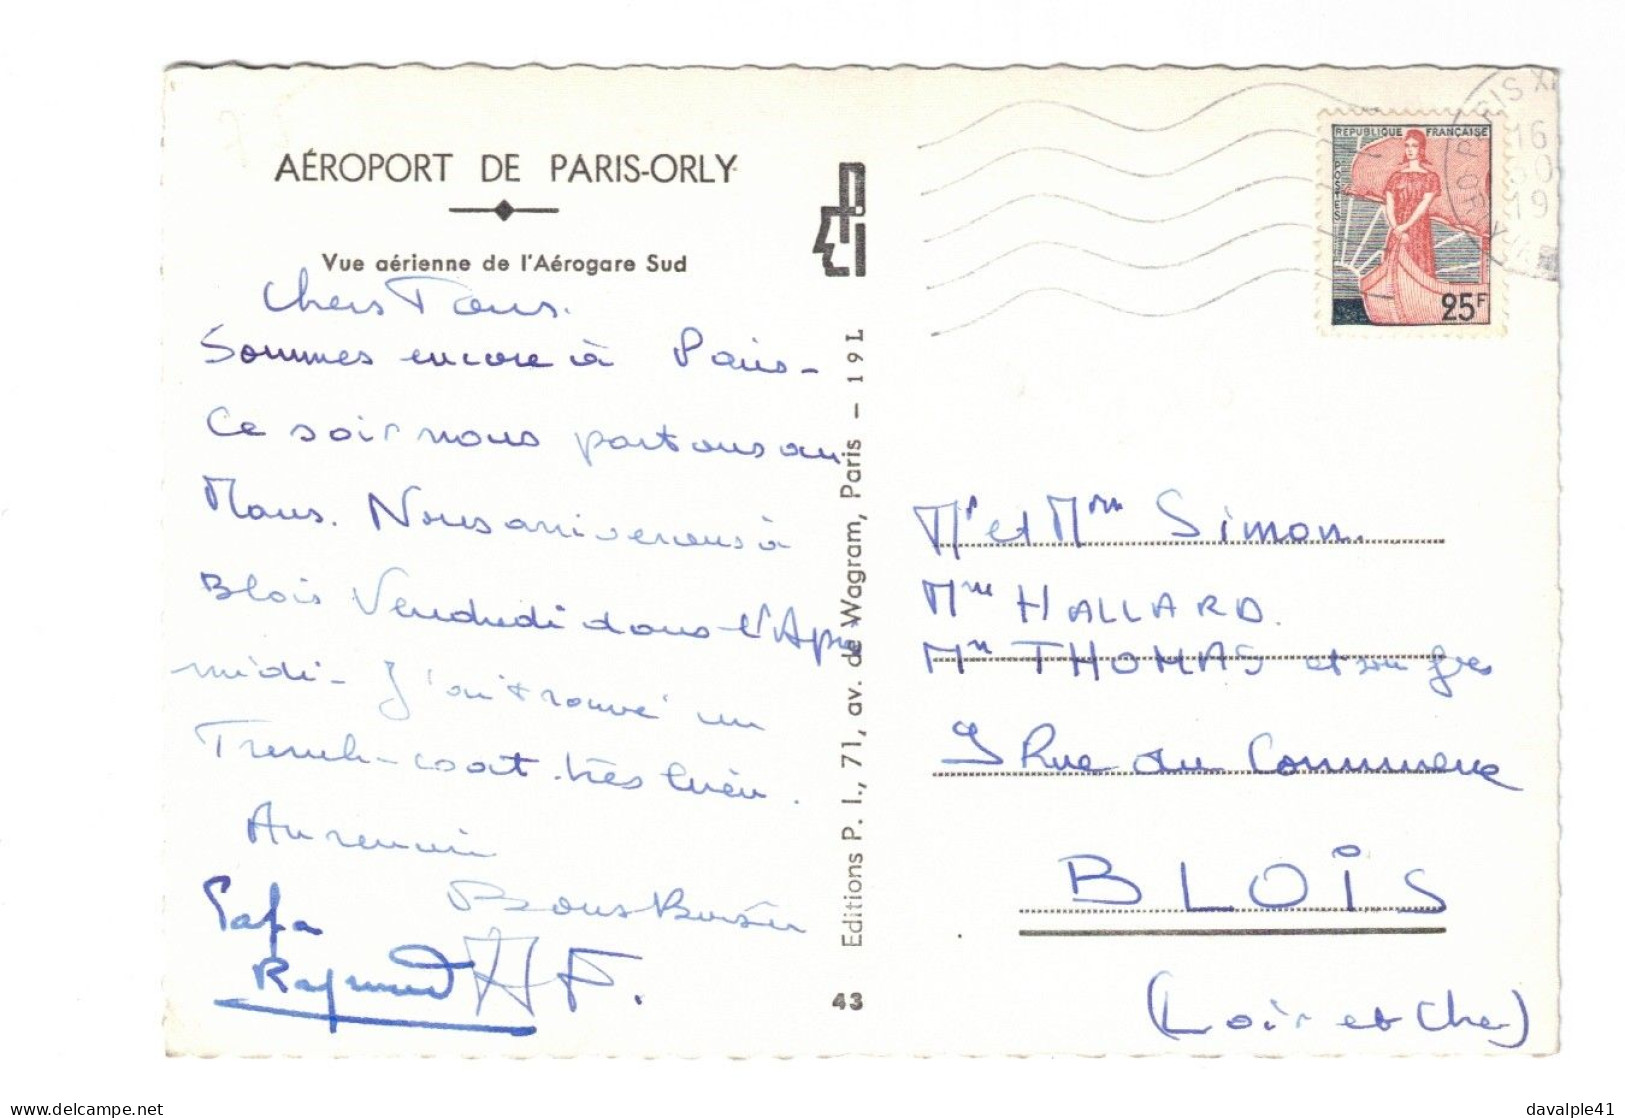 AÉROPORT DE PARIS-ORLY
Vue aérienne de l'Aérogare Sud
Chers Tous.
Sommes encore à Paris -
Ce soir nous partons au
Mans. Nous arriverons à
Blois Vendredi dans l'Après
midi - J'ai trouvé un
Trench-coat très bien.
Au revoir
Bons Baisers
Papa
Raymond
Editions P. I., 71, av. de Wagram, Paris - 19 L
43
REPUBLIQUE FRANÇAISE
POSTES
25F
PARIS
16
19
Mr et Mme Simon.
Mme HALLARD.
Mme THOMAS et son
Rue du Commerce
BLOIS
(Loir et Cher)
delcampe.net
davalple41